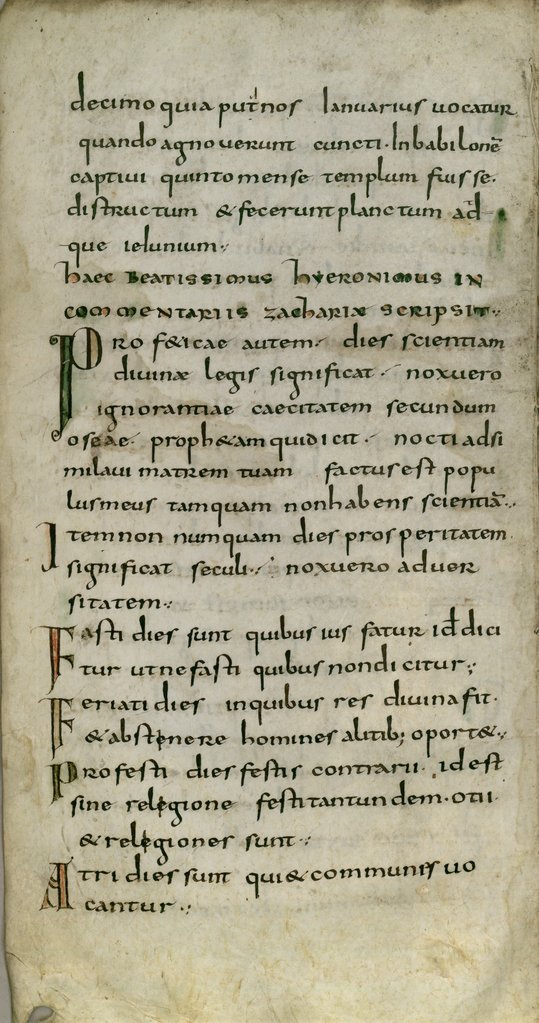 decimo quia put nos Ianuarius uocatur
quando agnouerunt cuncti. In babilonē
captiui quinto mense templum fuisse.
distructum & fecerunt planctum ad
que ieiunium:
haec beatissimus hyeronimus in
commentariis zachariæ scripsit.
Prof&icae autem. dies scientiam
diuinæ legis significat. nox uero
ignorantiae caecitatem secundum
oseae proph&am qui dicit. nocti adsi
milaui matrem tuam factus est popu
lus meus tamquam non habens scientiā.
Item non numquam dies prosperitatem
significat seculi. nox uero aduer
sitatem:
Fasti dies sunt quibus ius fatur id dici
tur ut nefasti quibus non dicitur;
Feriati dies in quibus res diuina fit.
& abstinere homines alitib; oport&.
Profesti dies festis contrarii id est
sine religione festi tantundem. otii
& religiones sunt:
Atri dies sunt qui & communes uo
cantur.